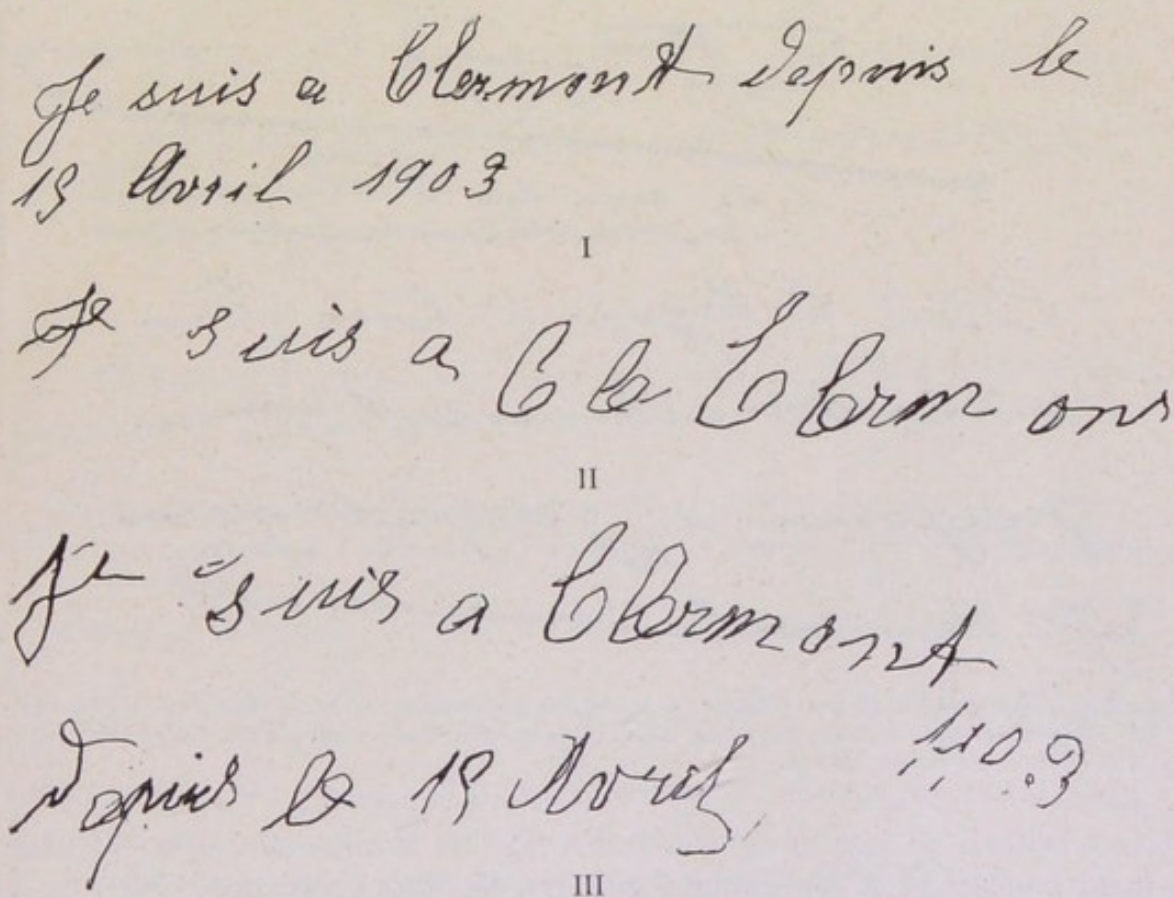 Je suis a Clermont depuis le
15 Avril 1903
I
Je suis a C Cle Clermons
II
Je suis a Clermont
depuis le 15 Avril 1903
III